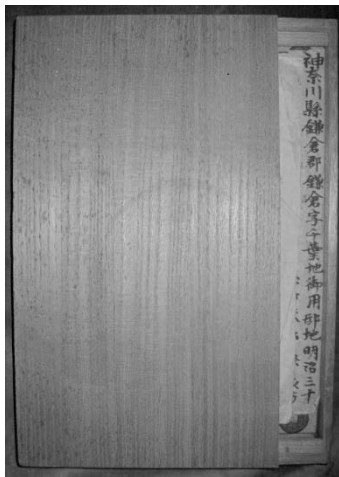 神奈川縣鎌倉郡鎌倉字千葉地御用邸地明治三十